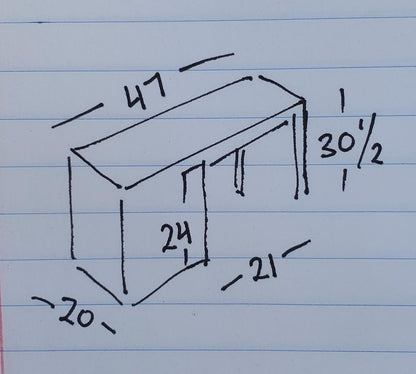 47
30 1/2
24
21
20